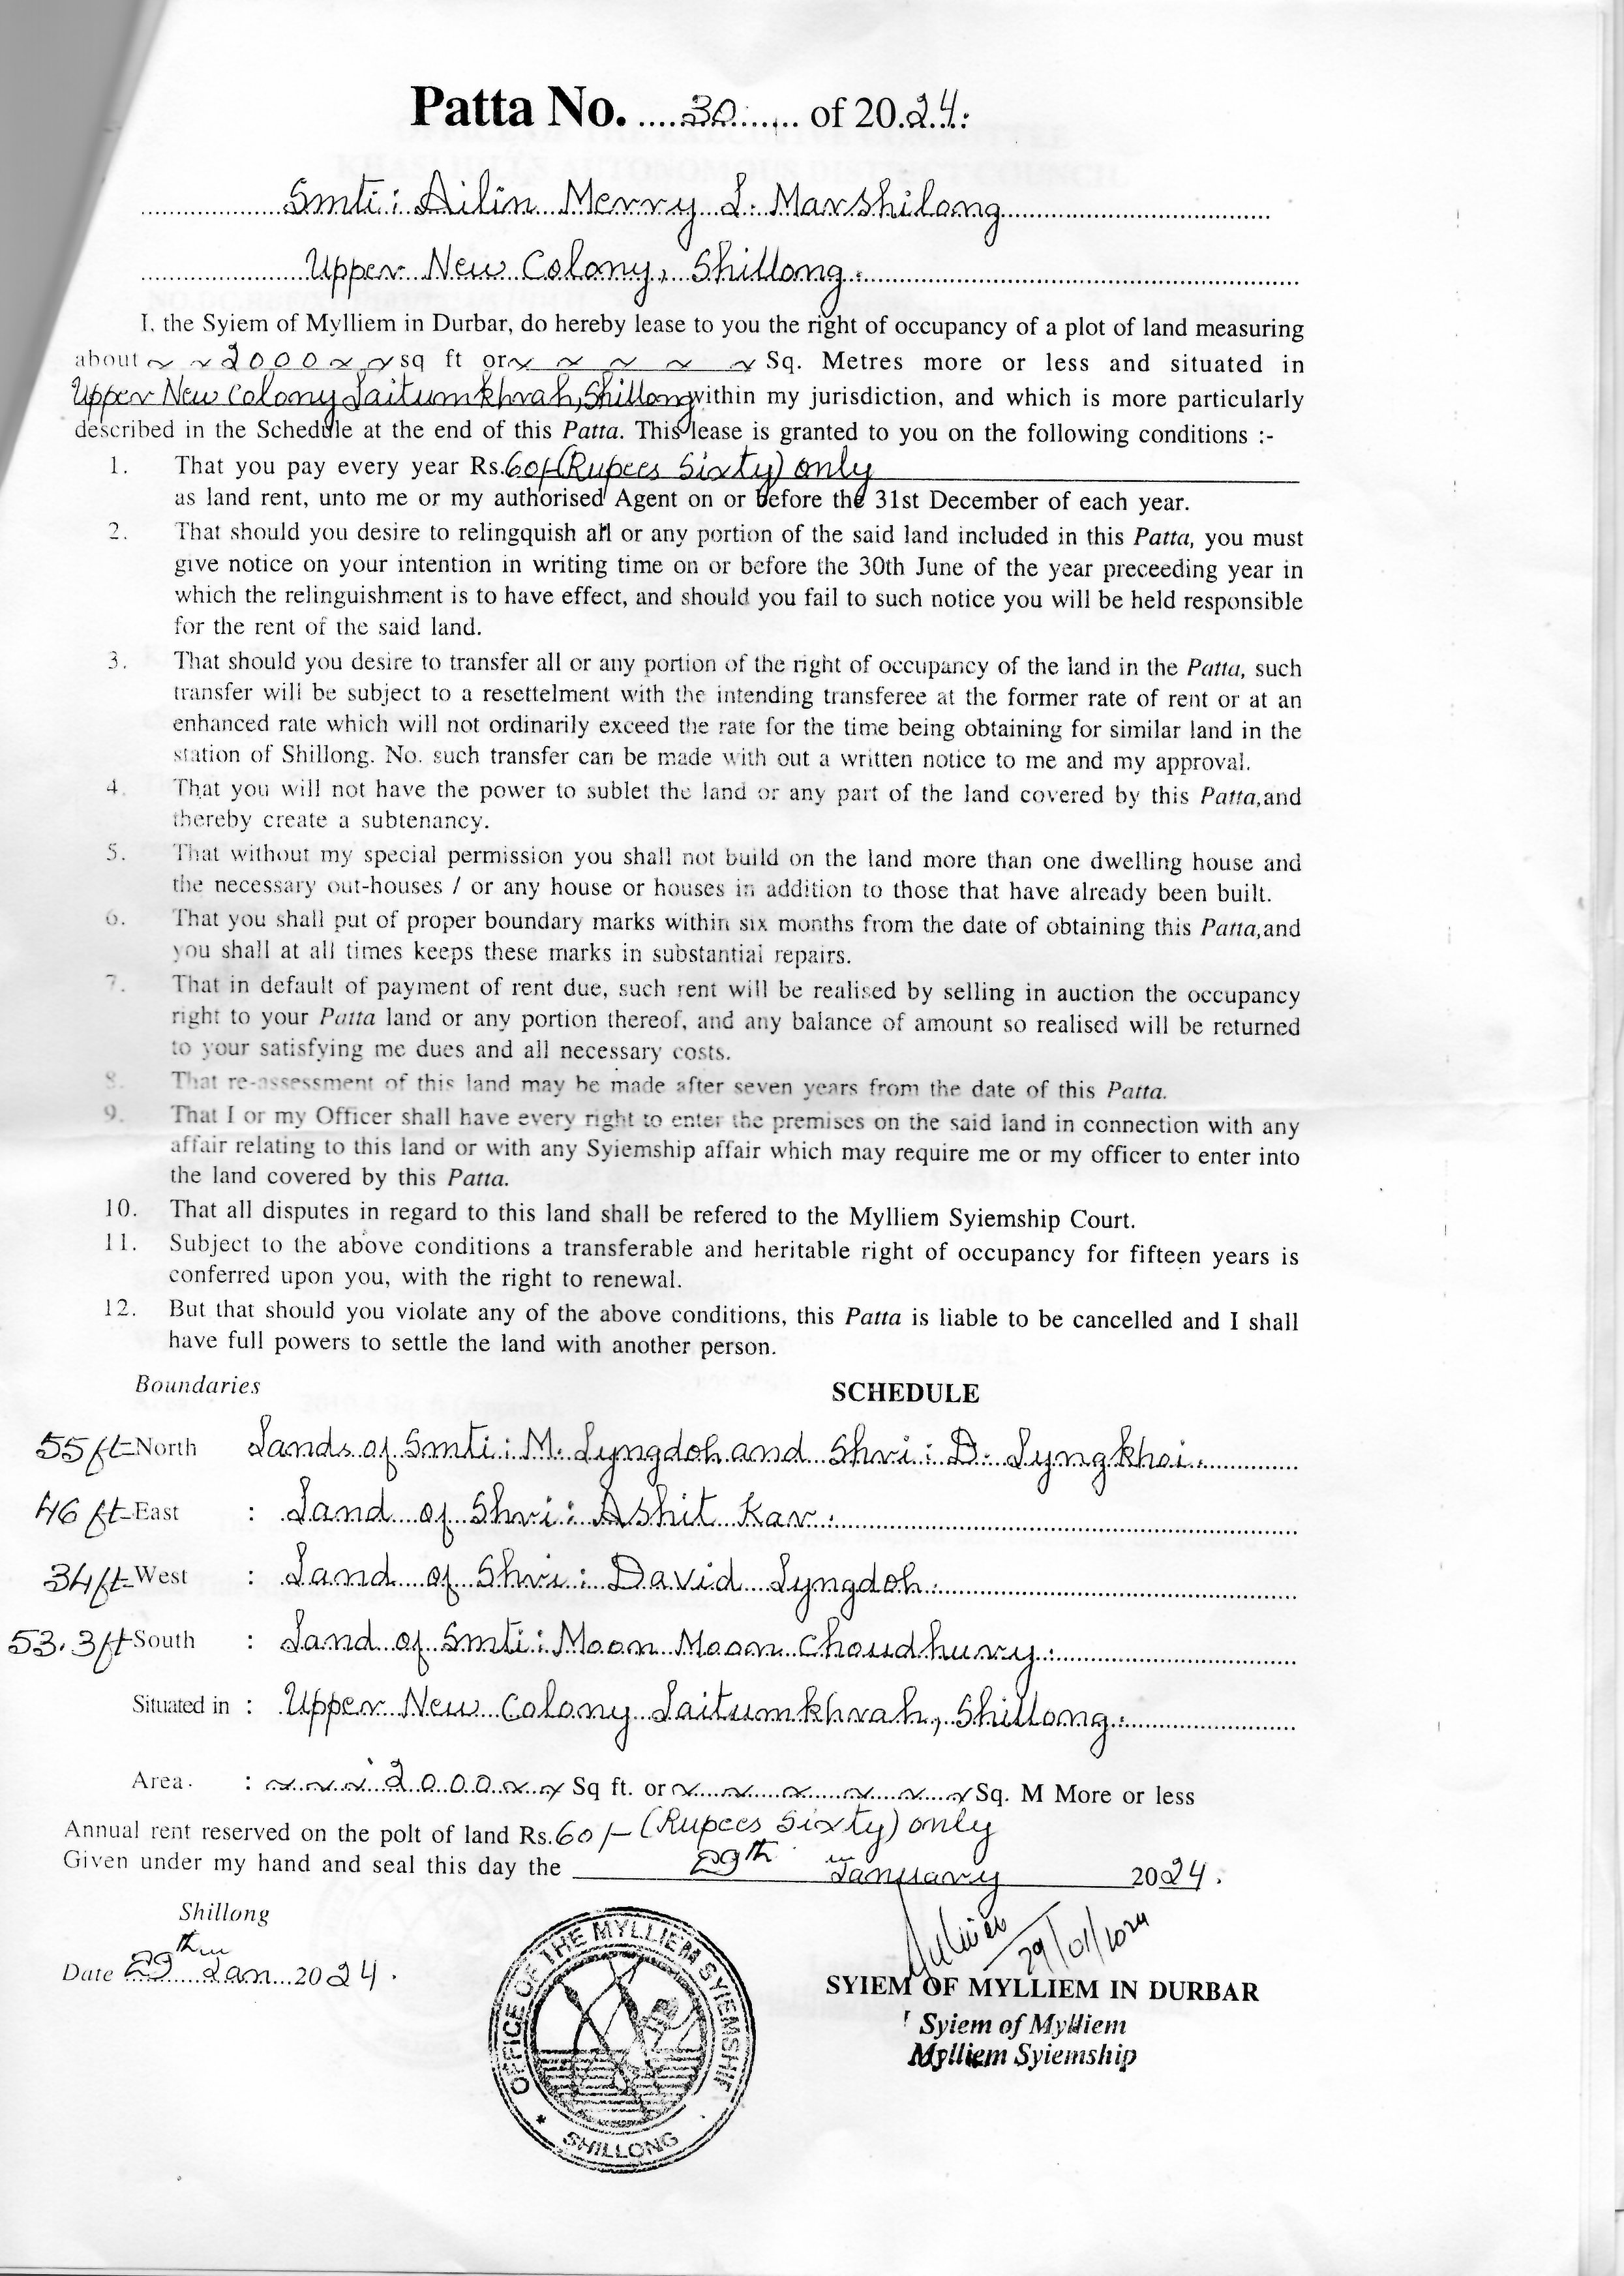 Patta No. ....30........ of 20.24.
Smti: Ailin Merry L. Marshilong
Upper New Colony, Shillong.
I, the Syiem of Mylliem in Durbar, do hereby lease to you the right of occupancy of a plot of land measuring
about ~ ~ 2000 ~ ~ sq ft or ~ ~ ~ ~ ~ Sq. Metres more or less and situated in
Upper New Colony Laitumkhrah, Shillong within my jurisdiction, and which is more particularly
described in the Schedule at the end of this Patta. This lease is granted to you on the following conditions :-
1. That you pay every year Rs. 60/- (Rupees Sixty) only
as land rent, unto me or my authorised Agent on or before the 31st December of each year.
2. That should you desire to relingquish all or any portion of the said land included in this Patta, you must
give notice on your intention in writing time on or before the 30th June of the year preceeding year in
which the relinguishment is to have effect, and should you fail to such notice you will be held responsible
for the rent of the said land.
3. That should you desire to transfer all or any portion of the right of occupancy of the land in the Patta, such
transfer will be subject to a resettelment with the intending transferee at the former rate of rent or at an
enhanced rate which will not ordinarily exceed the rate for the time being obtaining for similar land in the
station of Shillong. No. such transfer can be made with out a written notice to me and my approval.
4. That you will not have the power to sublet the land or any part of the land covered by this Patta,and
thereby create a subtenancy.
5. That without my special permission you shall not build on the land more than one dwelling house and
the necessary out-houses / or any house or houses in addition to those that have already been built.
6. That you shall put of proper boundary marks within six months from the date of obtaining this Patta,and
you shall at all times keeps these marks in substantial repairs.
7. That in default of payment of rent due, such rent will be realised by selling in auction the occupancy
right to your Patta land or any portion thereof, and any balance of amount so realised will be returned
to your satisfying me dues and all necessary costs.
8. That re-assessment of this land may be made after seven years from the date of this Patta.
9. That I or my Officer shall have every right to enter the premises on the said land in connection with any
affair relating to this land or with any Syiemship affair which may require me or my officer to enter into
the land covered by this Patta.
10. That all disputes in regard to this land shall be refered to the Mylliem Syiemship Court.
11. Subject to the above conditions a transferable and heritable right of occupancy for fifteen years is
conferred upon you, with the right to renewal.
12. But that should you violate any of the above conditions, this Patta is liable to be cancelled and I shall
have full powers to settle the land with another person.
Boundaries SCHEDULE
55 ft- North Lands of Smti: M. Lyngdoh and Shri: D. Lyngkhoi.
46 ft- East : Land of Shri: Ashit Kar.
34 ft- West : Land of Shri: David Lyngdoh.
53.3 ft South : Land of Smti: Moon Moon Choudhury.
Situated in : Upper New Colony Laitumkhrah, Shillong.
Area. : ~ ~ ~ 2000 ~ ~ Sq ft. or ~ ~ ~ ~ ~ ~ Sq. M More or less
Annual rent reserved on the polt of land Rs. 60/- (Rupees Sixty) only
Given under my hand and seal this day the 29th January 2024.
Shillong
Date 29th Jan 2024.
29/01/2024
SYIEM OF MYLLIEM IN DURBAR
Syiem of Mylliem
Mylliem Syiemship
OFFICE OF THE MYLLIEM SYIEMSHIP
* SHILLONG